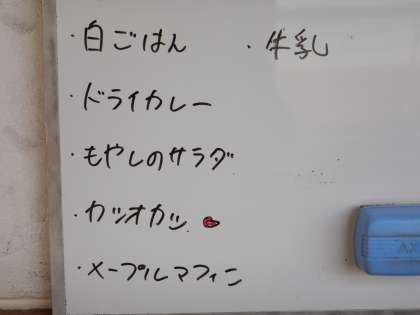 ・白ごはん ・牛乳
・ドライカレー
・もやしのサラダ
・カツオカツ
・メープルマフィン
AX